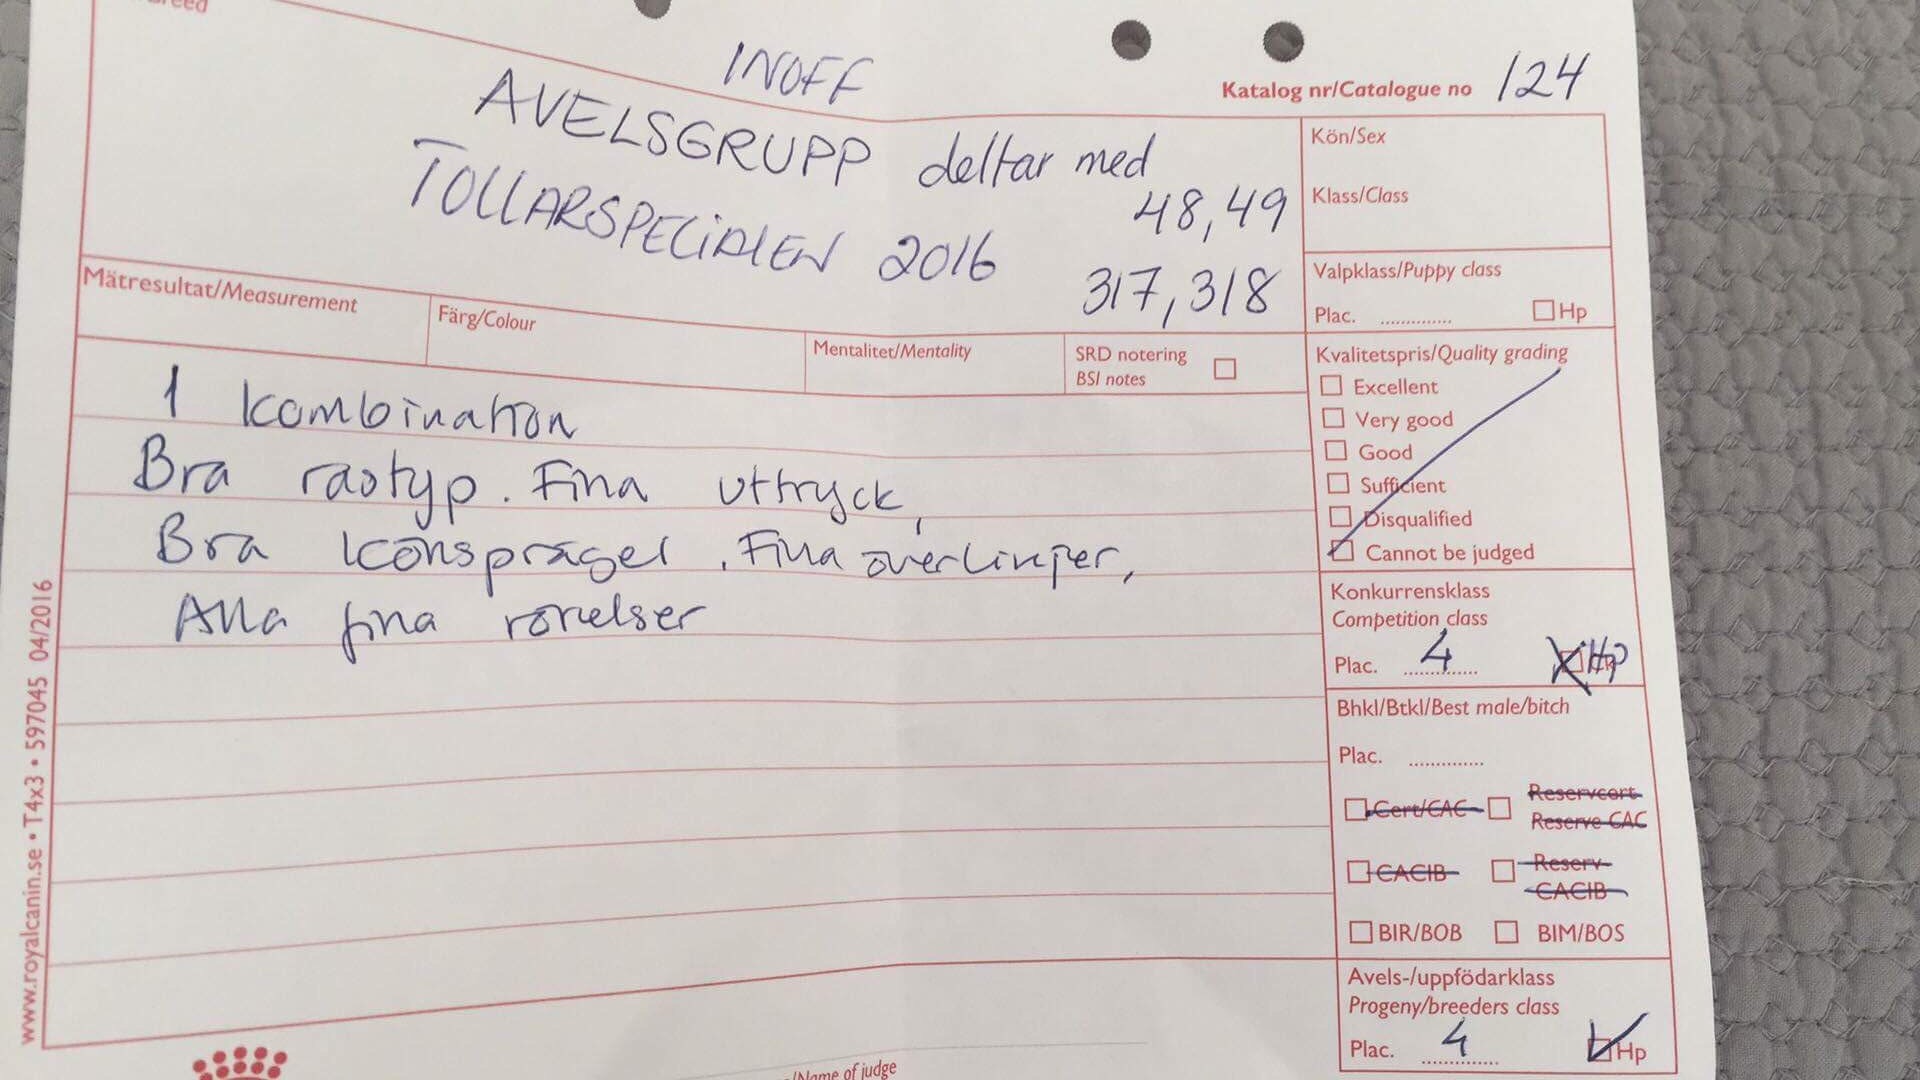 INOFF
Katalog nr/Catalogue no 124
AVELSGRUPP deltar med
48,49
TOLLARSPECIALEN 2016
317,318
Kön/Sex
Klass/Class
Valpklass/Puppy class
Plac. .............. Hp
Mätresultat/Measurement
Färg/Colour
Mentalitet/Mentality
SRD notering
BSI notes
1 kombination
Bra rastyp. Fina uttryck,
Bra könsprägel. Fina överlinjer,
Alla fina rörelser
Kvalitetspris/Quality grading
Excellent
Very good
Good
Sufficient
Disqualified
Cannot be judged
Konkurrensklass
Competition class
Plac. 4 Hp
Bhkl/Btkl/Best male/bitch
Plac. ..............
Cert/CAC
Reservcert
Reserve CAC
CACIB
Reserv-
CACIB
BIR/BOB BIM/BOS
Avels-/uppfödarklass
Progeny/breeders class
Plac. 4 Hp
www.royalcanin.se • T4x3 • 597045 04/2016
/Name of judge